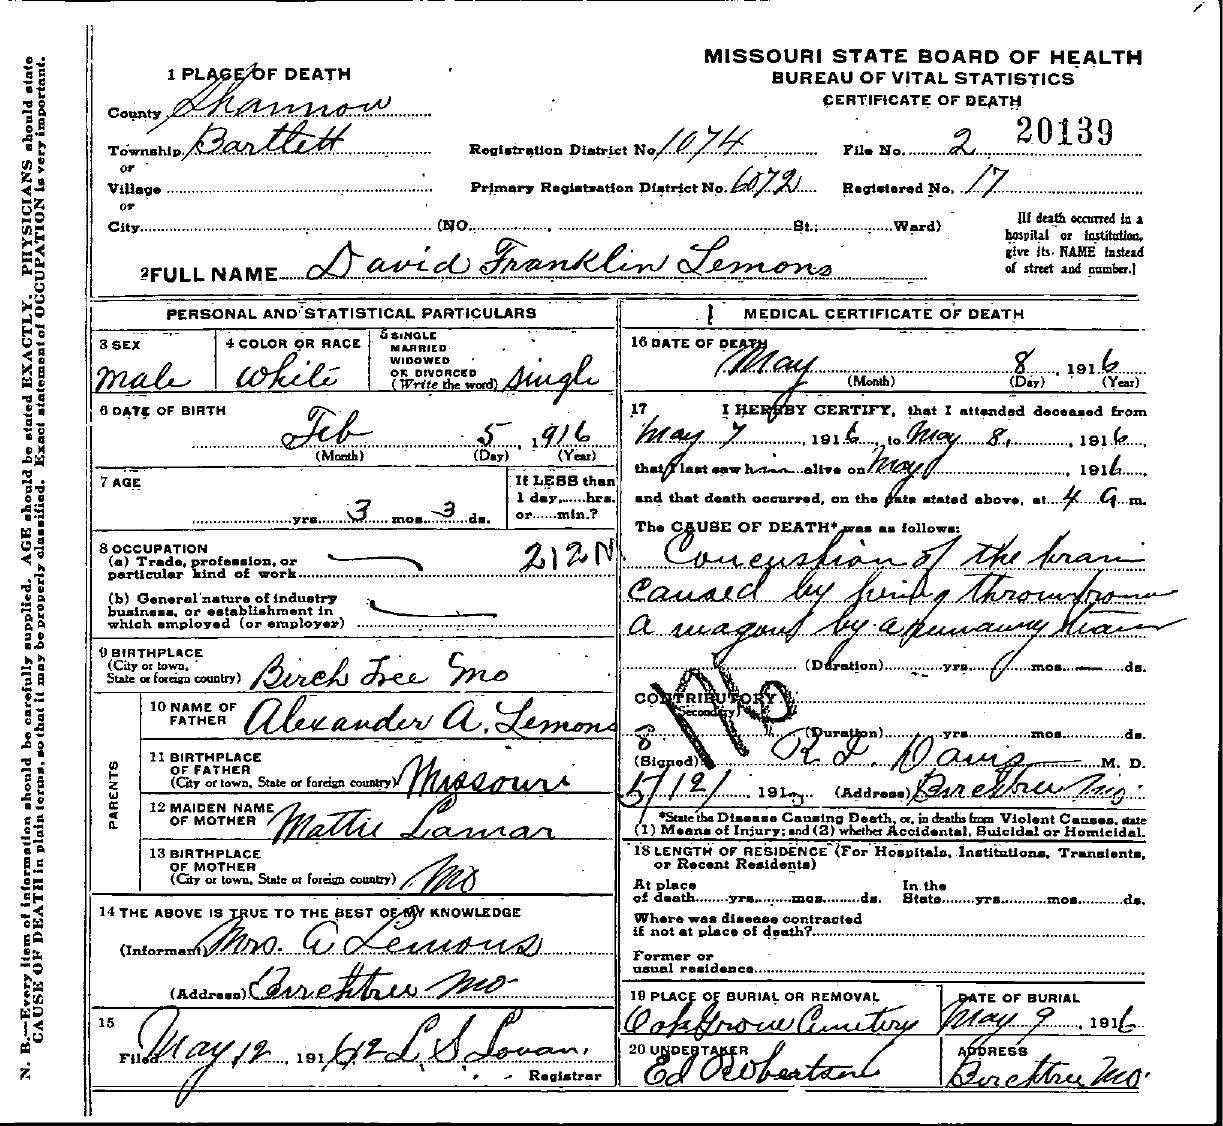 MISSOURI STATE BOARD OF HEALTH
BUREAU OF VITAL STATISTICS
CERTIFICATE OF DEATH
1 PLACE OF DEATH
County Shannon
Township Bartlett
or
Village
or
City (NO. St.; Ward)
Registration District No. 1074 File No. 2 20139
Primary Registration District No. 6072 Registered No. 17
[If death occurred in a
hospital or institution,
give its NAME instead
of street and number.]
2 FULL NAME David Franklin Lemons
PERSONAL AND STATISTICAL PARTICULARS
3 SEX
male
4 COLOR OR RACE
White
5 SINGLE
MARRIED
WIDOWED
OR DIVORCED
(Write the word) Single
6 DATE OF BIRTH
Feb 5, 1916
(Month) (Day) (Year)
7 AGE
yrs. 3 mos. 3 ds.
If LESS than
1 day, hrs.
or min.?
8 OCCUPATION
(a) Trade, profession, or
particular kind of work
212N
(b) General nature of industry
business, or establishment in
which employed (or employer)
9 BIRTHPLACE
(City or town,
State or foreign country) Birch Tree Mo
PARENTS
10 NAME OF
FATHER Alexander A. Lemons
11 BIRTHPLACE
OF FATHER
(City or town, State or foreign country) Missouri
12 MAIDEN NAME
OF MOTHER Mattie Lamar
13 BIRTHPLACE
OF MOTHER
(City or town, State or foreign country) Mo
14 THE ABOVE IS TRUE TO THE BEST OF MY KNOWLEDGE
(Informant) Mrs. A Lemons
(Address) Birchtree Mo
15
Filed May 12, 1916 L S Lovan.
Registrar
MEDICAL CERTIFICATE OF DEATH
16 DATE OF DEATH
May 8, 1916
(Month) (Day) (Year)
17 I HEREBY CERTIFY, that I attended deceased from
May 7, 1916, to May 8, 1916,
that I last saw him alive on May, 1916,
and that death occurred, on the date stated above, at 4 a m.
The CAUSE OF DEATH* was as follows:
Concussion of the brain
caused by being thrown from
a wagon by a runaway team
(Duration) yrs. mos. ds.
CONTRIBUTORY
(Secondary)
(Duration) yrs. mos. ds.
(Signed) R. L. Davis M. D.
5/12/ 191 (Address) Birchtree Mo.
*State the Disease Causing Death, or, in deaths from Violent Causes, state
(1) Means of Injury; and (2) whether Accidental, Suicidal or Homicidal.
18 LENGTH OF RESIDENCE (For Hospitals, Institutions, Transients,
or Recent Residents)
At place
of death yrs. mos. ds.
In the
State yrs. mos. ds.
Where was disease contracted
if not at place of death?
Former or
usual residence
19 PLACE OF BURIAL OR REMOVAL
Oak Grove Cemetery
DATE OF BURIAL
May 9, 1916
20 UNDERTAKER
Ed Robertson
ADDRESS
Birchtree Mo.
N. B.—Every item of information should be carefully supplied. AGE should be stated EXACTLY. PHYSICIANS should state
CAUSE OF DEATH in plain terms, so that it may be properly classified. Exact statement of OCCUPATION is very important.